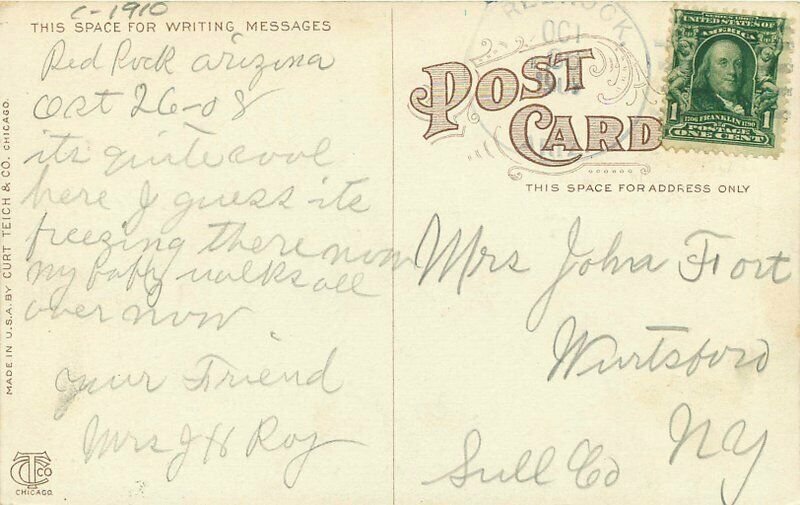 C-1910
THIS SPACE FOR WRITING MESSAGES
Red Rock arizona
Oct 26-08
its quite cool
here I guess its
freezing there now
my baby walks all
over now
your Friend
Mrs J H Roy
MADE IN U.S.A. BY CURT TEICH & CO. CHICAGO.
CTCO
CHICAGO.
RED ROCK,
OCT
ARIZ
POST
CARD
THIS SPACE FOR ADDRESS ONLY
SERIES 1902
UNITED STATES OF
AMERICA
1706 FRANKLIN 1790
POSTAGE
1 ONE CENT 1
Mrs John Fort
Wurtsboro
NY
Sull Co